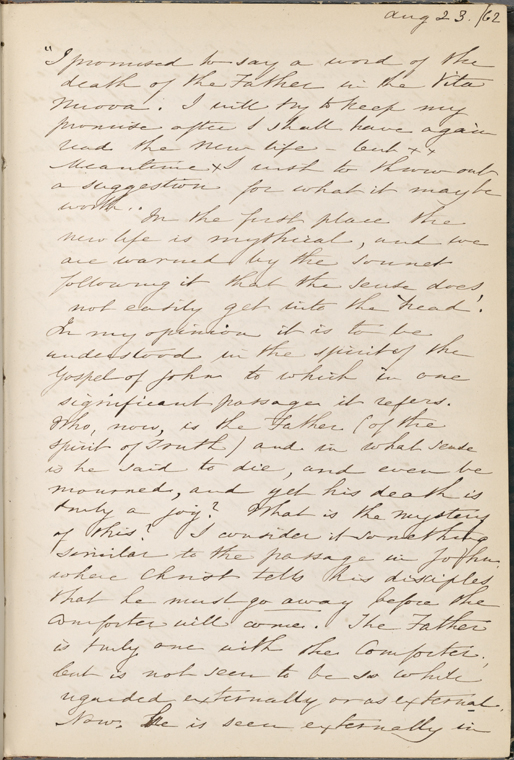 Aug 23. /62
"I promised to say a word of the
death of the Father in the Vita
Nuova. I will try to keep my
promise after I shall have again
read the New life - but x x
Meantime x I wish to throw out
a suggestion for what it may be
worth..
In the first place the
new life is mythical, and we
are warned by the sonnet
following it that the sense does
not easily get into the head'.
In my opinion it is to be
understood in the spirit of the
Gospel of John to which in one
significant passage it refers.
Who, now, is the Father (of the
spirit of Truth) and in what sense
is he said to die, and even be
mourned, and yet his death is
truly a joy? What is the mystery
of this? I consider it something
similar to the passage in John,
where Christ tells his disciples
that he must go away before the
Comforter will come. The Father
is truly one with the Comforter,
but is not seen to be so while
regarded externally or as external.
Now, he is seen externally in